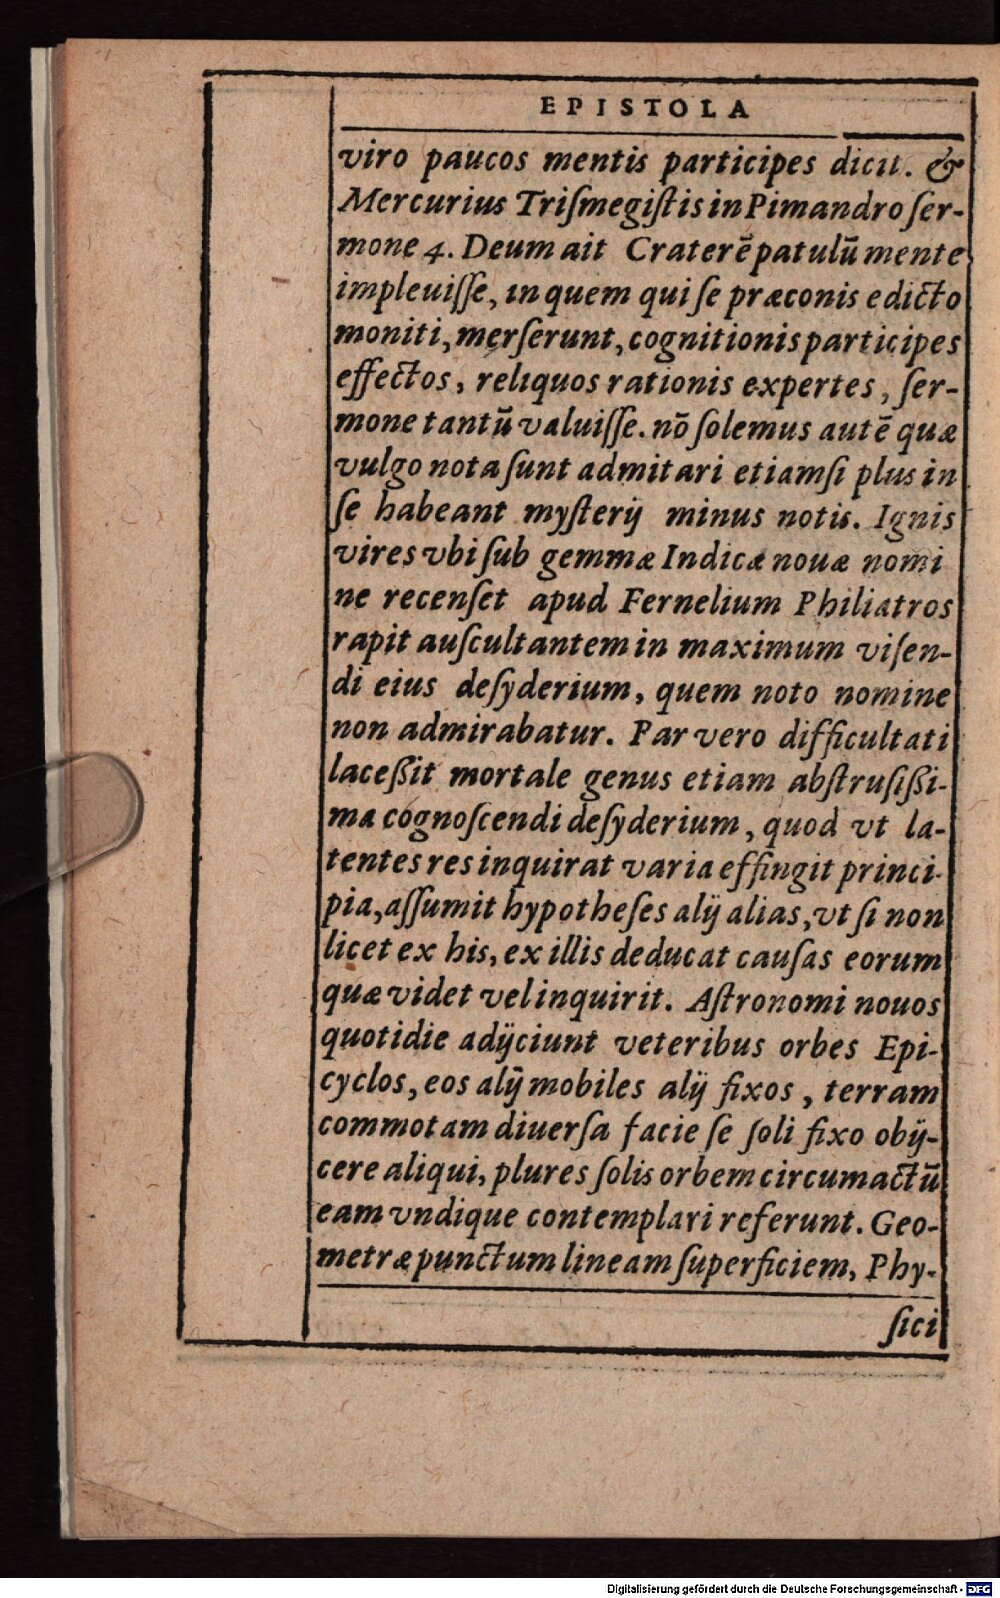 EPISTOLA
viro paucos mentis participes dicit. &
Mercurius Triſmegiſtis in Pimandro ſer-
mone 4. Deum ait Craterē patulū mente
impleuiſſe, in quem qui ſe præconis edicto
moniti, merſerunt, cognitionis participes
effectos, reliquos rationis expertes, ſer-
mone tantū valuiſſe. nō ſolemus autē quæ
vulgo nota ſunt admitari etiamſi plus in
ſe habeant myſterij minus notis. Ignis
vires vbi ſub gemmæ Indicæ nouæ nomi
ne recenſet apud Fernelium Philiatros
rapit auſcultantem in maximum viſen-
di eius deſyderium, quem noto nomine
non admirabatur. Par vero difficultati
laceßit mortale genus etiam abſtruſißi-
ma cognoſcendi deſyderium, quod vt la-
tentes res inquirat varia effingit princi-
pia, aſſumit hypotheſes alij alias, vt ſi non
licet ex his, ex illis deducat cauſas eorum
quæ videt vel inquirit. Aſtronomi nouos
quotidie adijciunt veteribus orbes Epi-
cyclos, eos alij mobiles alij fixos, terram
commotam diuerſa facie ſe ſoli fixo obij-
cere aliqui, plures ſolis orbem circumactū
eam vndique contemplari referunt. Geo-
metræ punctum lineam ſuperficiem, Phy-
ſici
Digitalisierung gefördert durch die Deutsche Forschungsgemeinschaft - DFG